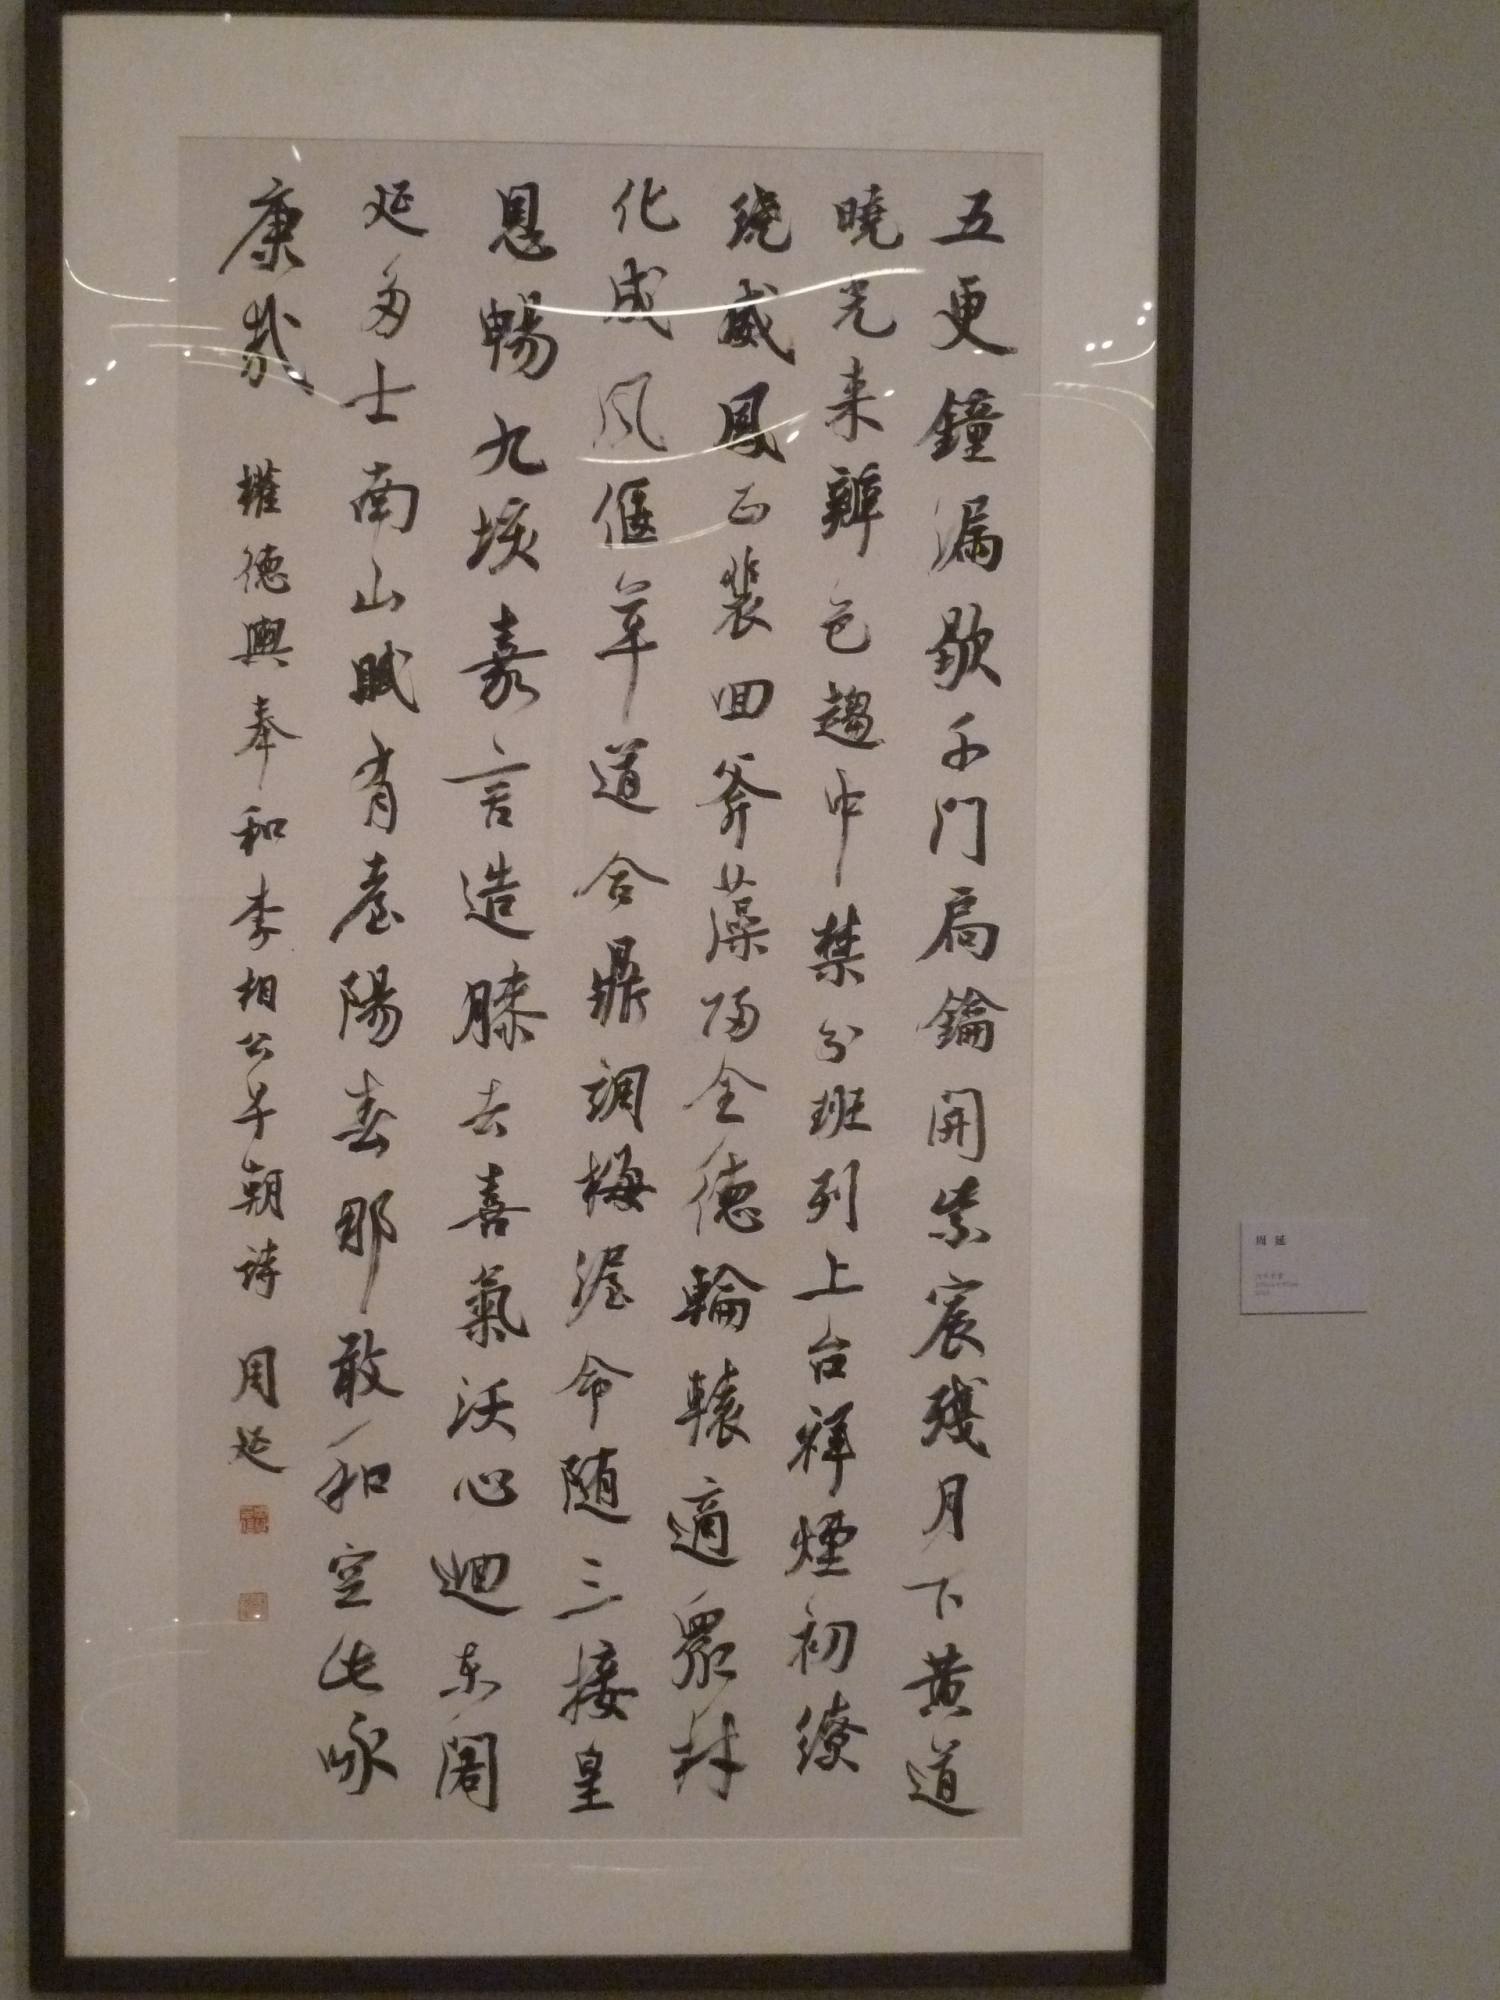 五更鐘漏歇千门扃鑰開紫宸殘月下黄道
曉光来辨色趨中禁分班列上台祥煙初繚
繞威鳳正裴回斧藻歸全德輪轅適衆材
化成風偃草道合鼎調梅渥命随三接皇
恩暢九垓嘉言造膝去喜氣沃心迴东阁
延多士南山賦有臺陽春那敢和空此咏
康哉
權德輿奉和李相公早朝詩 周延
周 延